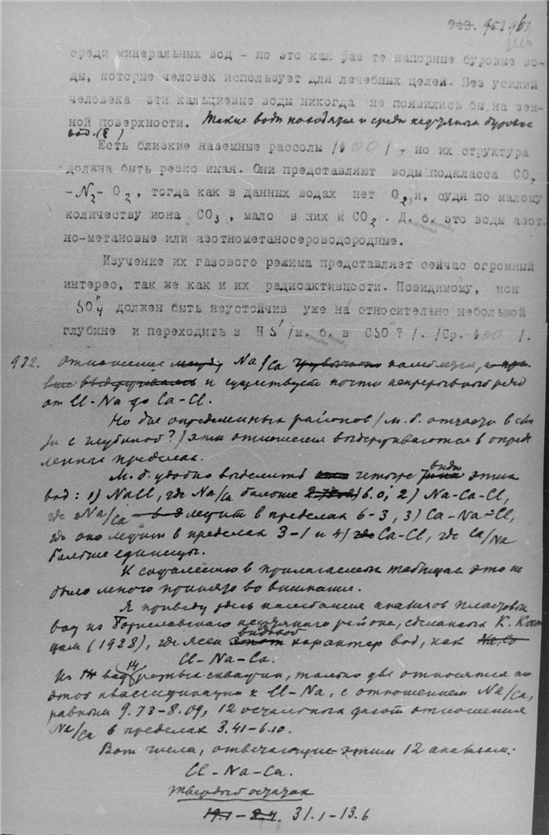 943. 951963
среди минеральных вод - но это как раз те напорные буровые во-
ды, которые человек использует для лечебных целей. Без усилий
человека эти кальциевые воды никогда не появились бы на зем-
ной поверхности. Такие воды находятся и среди нефтяных буровых
вод.
Есть близкие наземные рассолы / но их структура
должна быть резко иная. Они представляют воды подкласса CO2
-N2- O2, тогда как в данных водах нет O2 и, судя по малому
количеству иона CO3, мало в них и CO2. Д. б. это воды азот-
но-метановые или азотнометаносероводородные.
Изучение их газового режима представляет сейчас огромный
интерес, так же как и их радиоактивности. Повидимому, ион
SO4 должен быть неустойчив уже на относительно небольшой
глубине и переходить в HS' /м. б. в CSO ? /. /Ср. /.
932. Отношение между Na/Ca колеблется,
и существует почти непрерывный ряд
от Cl-Na до Ca-Cl.
Но для определенных районов /м. б. отчасти в свя-
зи с глубиной?/ эти отношения выдерживаются в опреде-
ленных пределах.
М. б. удобно выделить четыре вида этих
вод: 1) NaCl, где Na/Ca больше 6.0, 2) Na-Ca-Cl,
где Na/Ca лежит в пределах 6-3, 3) Ca-Na-Cl,
где оно лежит в пределах 3-1 и 4) Ca-Cl, где Ca/Na
больше единицы.
К сожалению в прилагаемых таблицах это не
было много принято во внимание.
Я приведу здесь колебания анализов пластовых
вод из Бориславского нефтяного района, сделанных К.
(1928), где ясен видовой характер вод, как
Cl-Na-Ca.
Из 14 вод разных скважин, только две относятся по
этой классификации к Cl-Na, с отношением Na/Ca,
равным 9.73-8.09, 12 остальных дают отношения
Na/Ca в пределах 3.41-6.10.
Вот числа, отвечающие этим 12 анализам:
Cl-Na-Ca.
Твердый остаток
31.1-13.6